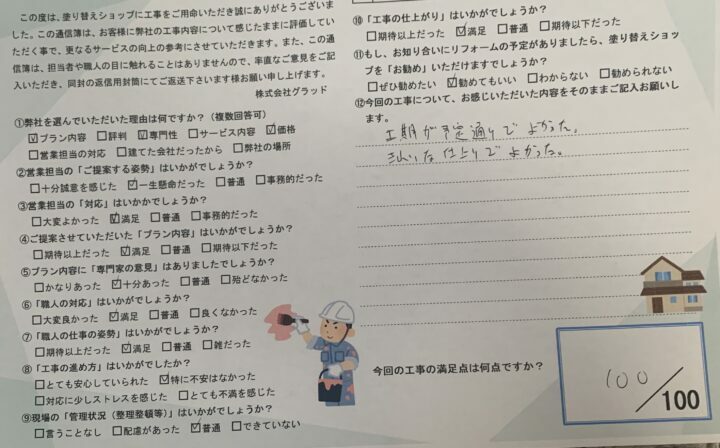 この度は、塗り替えショップに工事をご用命いただき誠にありがとうございま
した。この通信簿は、お客様に弊社の工事内容について感じたままに評価してい
ただく事で、更なるサービスの向上の参考にさせていただきます。また、この通
信簿は、担当者や職人の目に触れることはありませんので、率直なご意見をご記
入いただき、同封の返信用封筒にてご返送下さいます様お願い申し上げます。
株式会社グラッド
①弊社を選んでいただいた理由は何ですか?(複数回答可)
☑プラン内容 □評判 ☑専門性 □サービス内容 ☑価格
□営業担当の対応 □建てた会社だったから □弊社の場所
②営業担当の「ご提案する姿勢」はいかがでしょうか?
□十分誠意を感じた ☑一生懸命だった □普通 □事務的だった
③営業担当の「対応」はいかかでしょうか?
□大変よかった ☑満足 □普通 □事務的だった
④ご提案させていただいた「プラン内容」はいかがでしょうか?
□期待以上だった ☑満足 □普通 □期待以下だった
⑤プラン内容に「専門家の意見」はありましたでしょうか?
□かなりあった ☑十分あった □普通 □殆どなかった
⑥「職人の対応」はいかがでしょうか?
□大変良かった ☑満足 □普通 □良くなかった
⑦「職人の仕事の姿勢」はいかがでしょうか?
□期待以上だった ☑満足 □普通 □雑だった
⑧「工事の進め方」はいかがでしたか?
□とても安心していられた ☑特に不安はなかった
□対応に少しストレスを感じた □とても不満を感じた
⑨現場の「管理状況(整理整頓等)」はいかがでしょうか?
□言うことなし □配慮があった ☑普通 □できていない
⑩「工事の仕上がり」はいかがでしょうか?
□期待以上だった ☑満足 □普通 □期待以下だった
⑪もし、お知り合いにリフォームの予定がありましたら、塗り替えショッ
プを「お勧め」いただけますでしょうか?
□ぜひ勧めたい ☑勧めてもいい □わからない □勧められない
⑫今回の工事について、お感じいただいた内容をそのままご記入お願いし
ます。
工期が予定通りでよかった。
きれいな仕上りでよかった。
今回の工事の満足点は何点ですか?
100/100